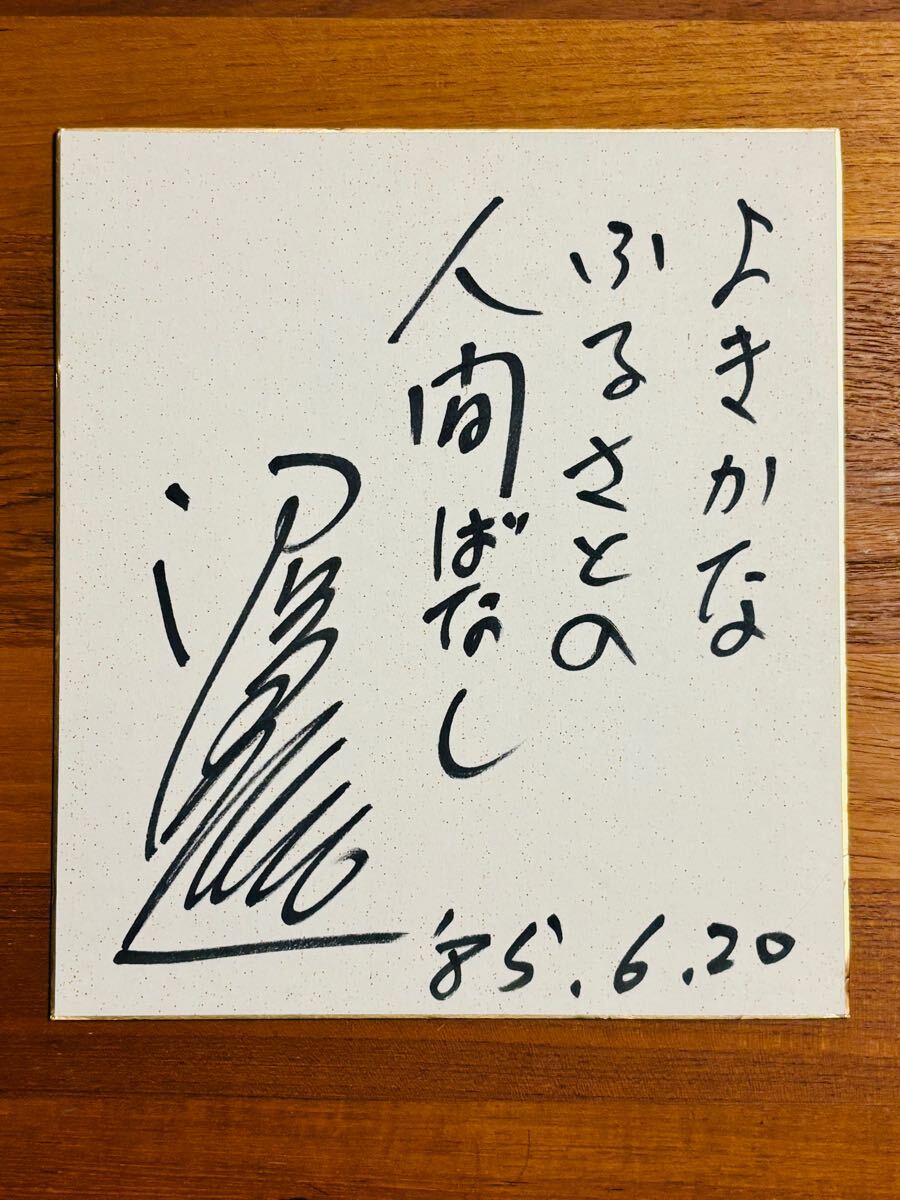 よきかな
ふるさとの
人間ばなし
'85.6.20